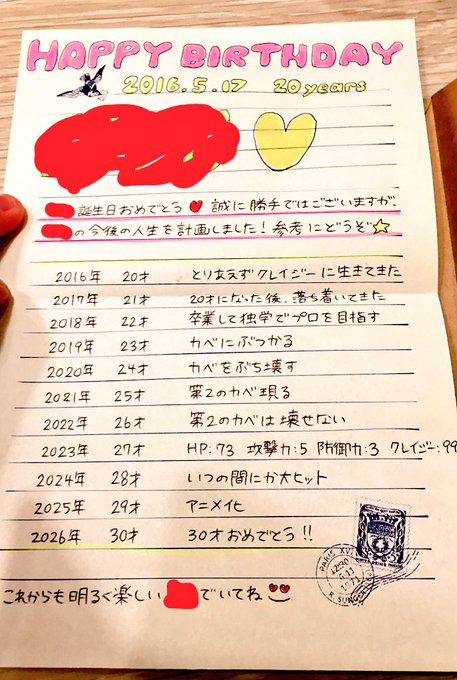 HAPPY BIRTHDAY
2016.5.17 20years
誕生日おめでとう 誠に勝手ではございますが、
の今後の人生を計画しました!参考にどうぞ
2016年 20才 とりあえずクレイジーに生きてきた
2017年 21才 20才になった後、落ち着いてきた
2018年 22才 卒業して独学でプロを目指す
2019年 23才 カベにぶつかる
2020年 24才 カベをぶち壊す
2021年 25才 第2のカベ現る
2022年 26才 第2のカベは壊せない
2023年 27才 HP:73 攻撃力:5 防御力:3 クレイジー:99
2024年 28才 いつの間にか大ヒット
2025年 29才 アニメイヒ
2026年 30才 30才おめでとう!!
PARIS XVI
これからも明るく楽しい でいてね